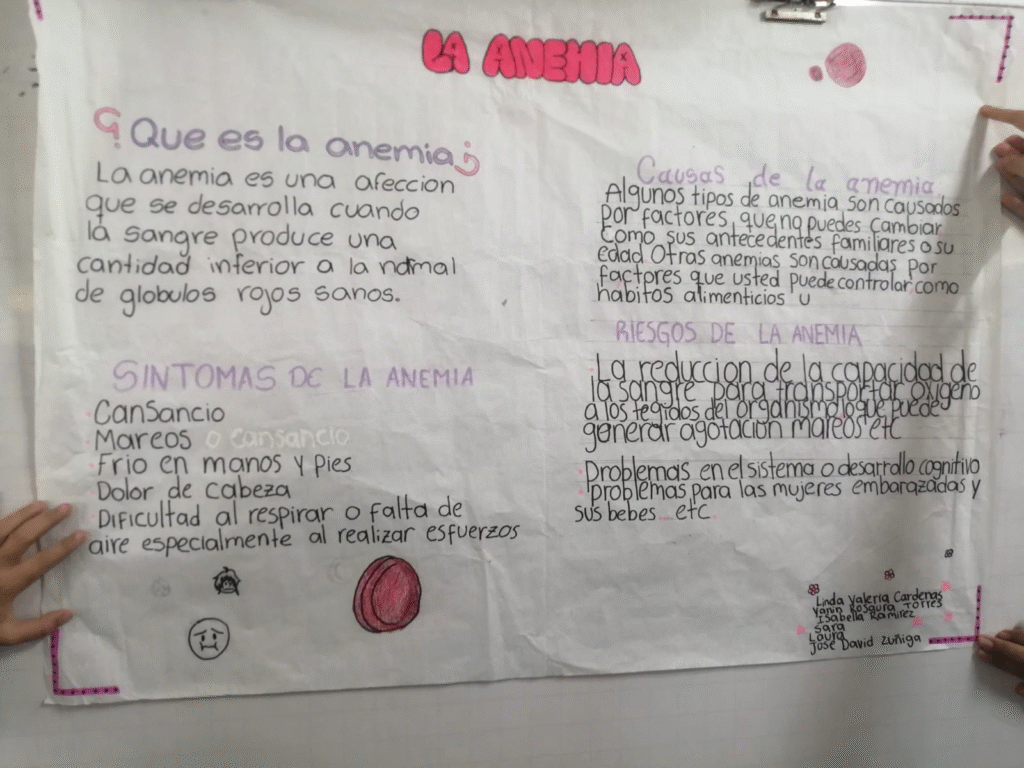 LA ANEMIA
¿Que es la anemia?
La anemia es una afeccion
que se desarrolla cuando
la sangre produce una
cantidad inferior a la normal
de globulos rojos sanos.
SINTOMAS DE LA ANEMIA
Cansancio
Mareos o cansancio
Frio en manos y pies
Dolor de cabeza
Dificultad al respirar o falta de
aire especialmente al realizar esfuerzos
Causas de la anemia
Algunos tipos de anemia son causados
por factores, que no puedes cambiar
como sus antecedentes familiares o su
edad Otras anemias son causadas por
factores que usted puede controlar como
habitos alimenticios u
RIESGOS DE LA ANEMIA
La reduccion de la capacidad de
la sangre para transportar oxigeno
a los tegidos del organismo lo que puede
generar agotacion mareos etc
Problemas en el sistema o desarrollo cognitivo
problemas para las mujeres embarazadas y
sus bebes etc
Linda Valeria Cardenas
Rosaura Torres
Isabella Ramirez
Sara
Laura
Jose David Zuñiga